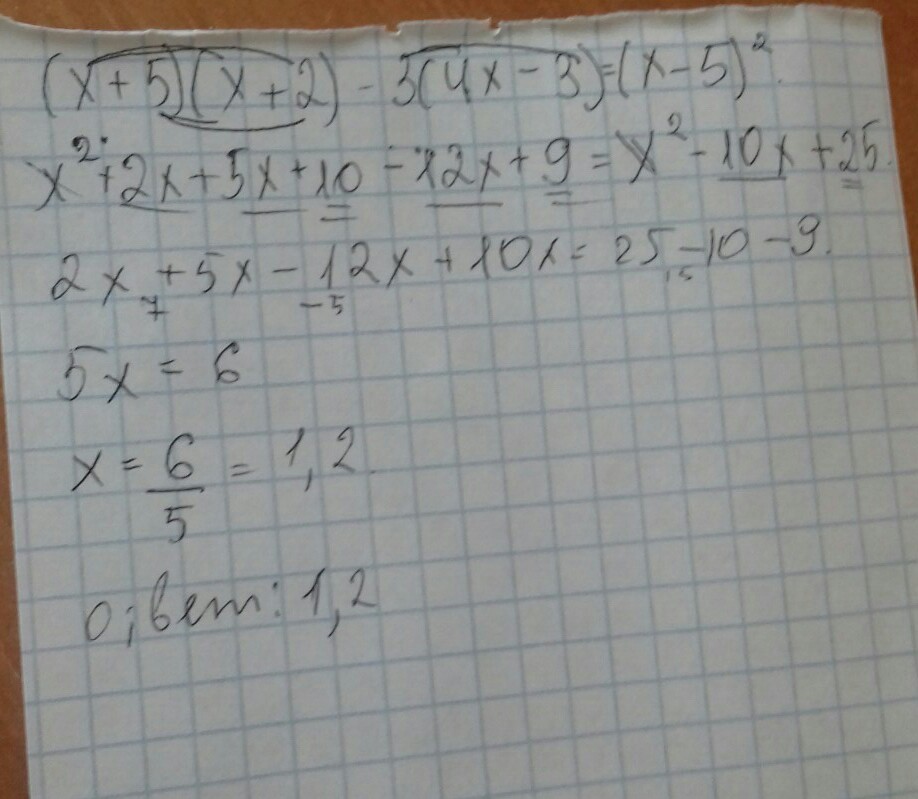 (x+5)(x+2) - 3(4x-3)=(x-5)².
x²+2x+5x+10-12x+9=x²-10x+25.
2x+5x-12x+10x=25-10-9.
7 -5 15
5x=6
x=6/5=1,2.
о;вет: 1,2